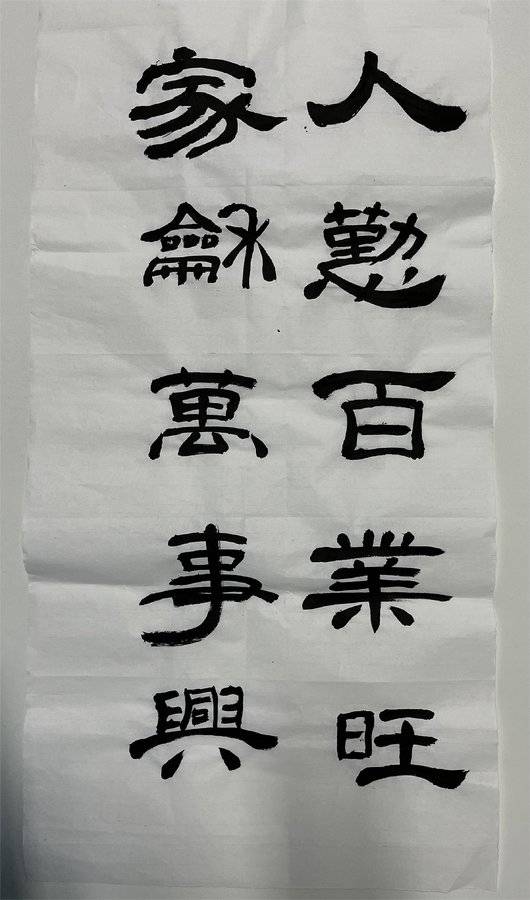 人懃百業旺
家龢萬事興